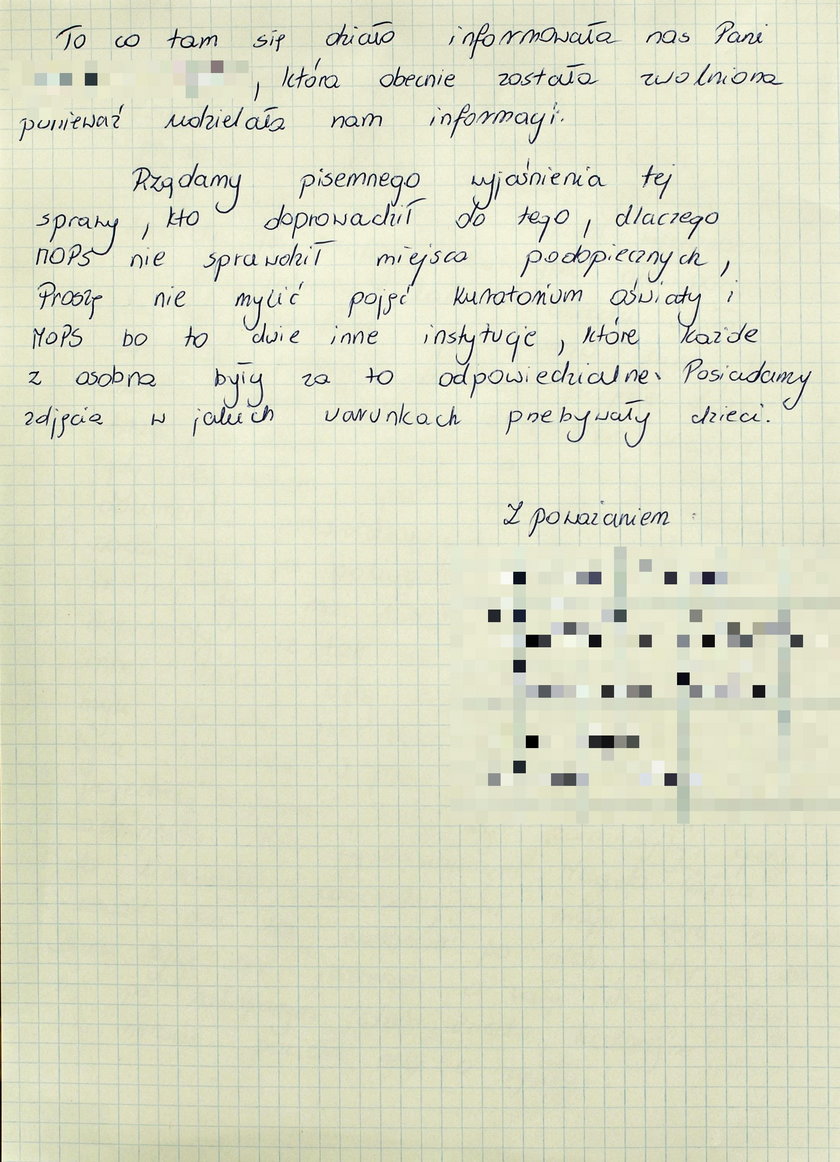 To co tam się działo informowała nas Pani
, która obecnie została zwolniona
ponieważ udzielała nam informacji.
Rządamy pisemnego wyjaśnienia tej
sprawy, kto doprowadził do tego, dlaczego
MOPS nie sprawdził miejsca podopiecznych,
Proszę nie mylić pojęć Kuratorium oświaty i
MOPS bo to dwie inne instytucje, które każde
z osobna były za to odpowiedzialne. Posiadamy
zdjęcia w jakich warunkach przebywały dzieci.
Z poważaniem